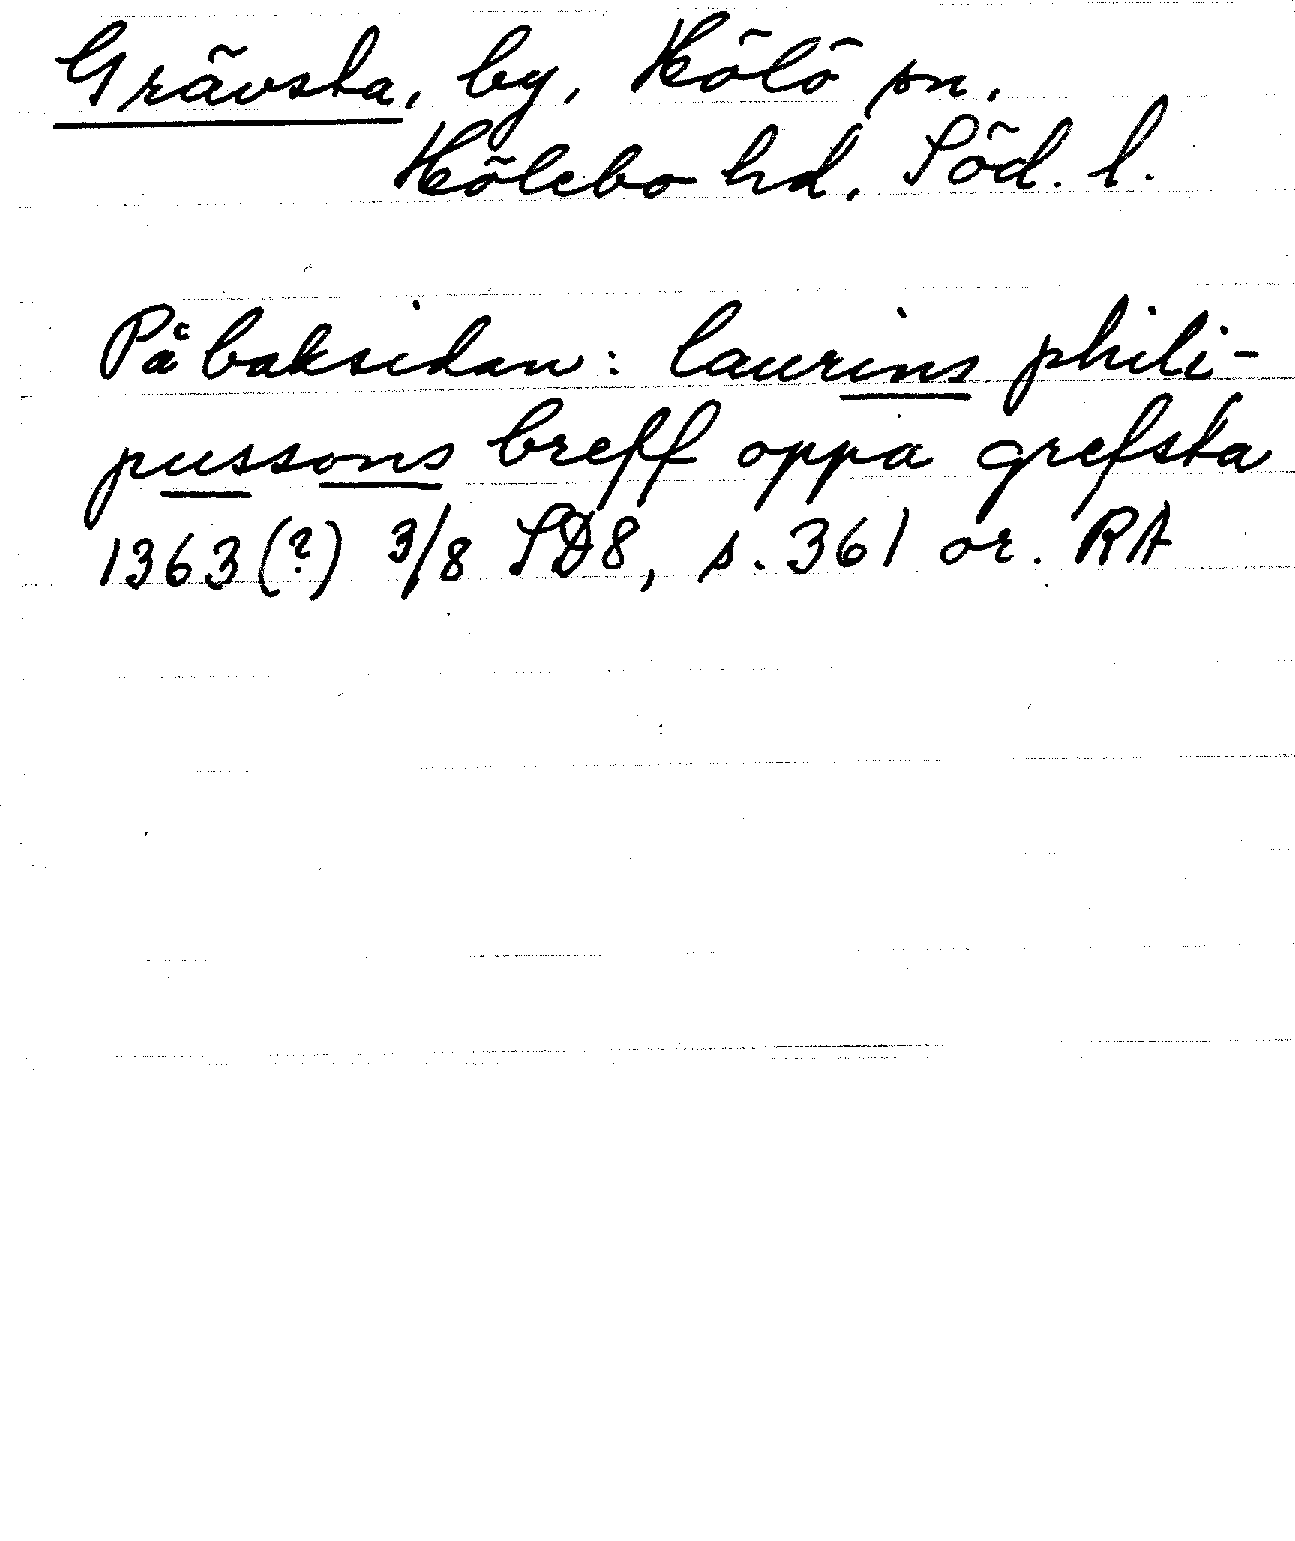 Grävsta, by, Hölö sn.
Hölebo hd. Söd. l.
På baksidan: laurins phili-
pussons breff oppa grefsta
1363(?) 3/8 SD8, s. 361 or. RA